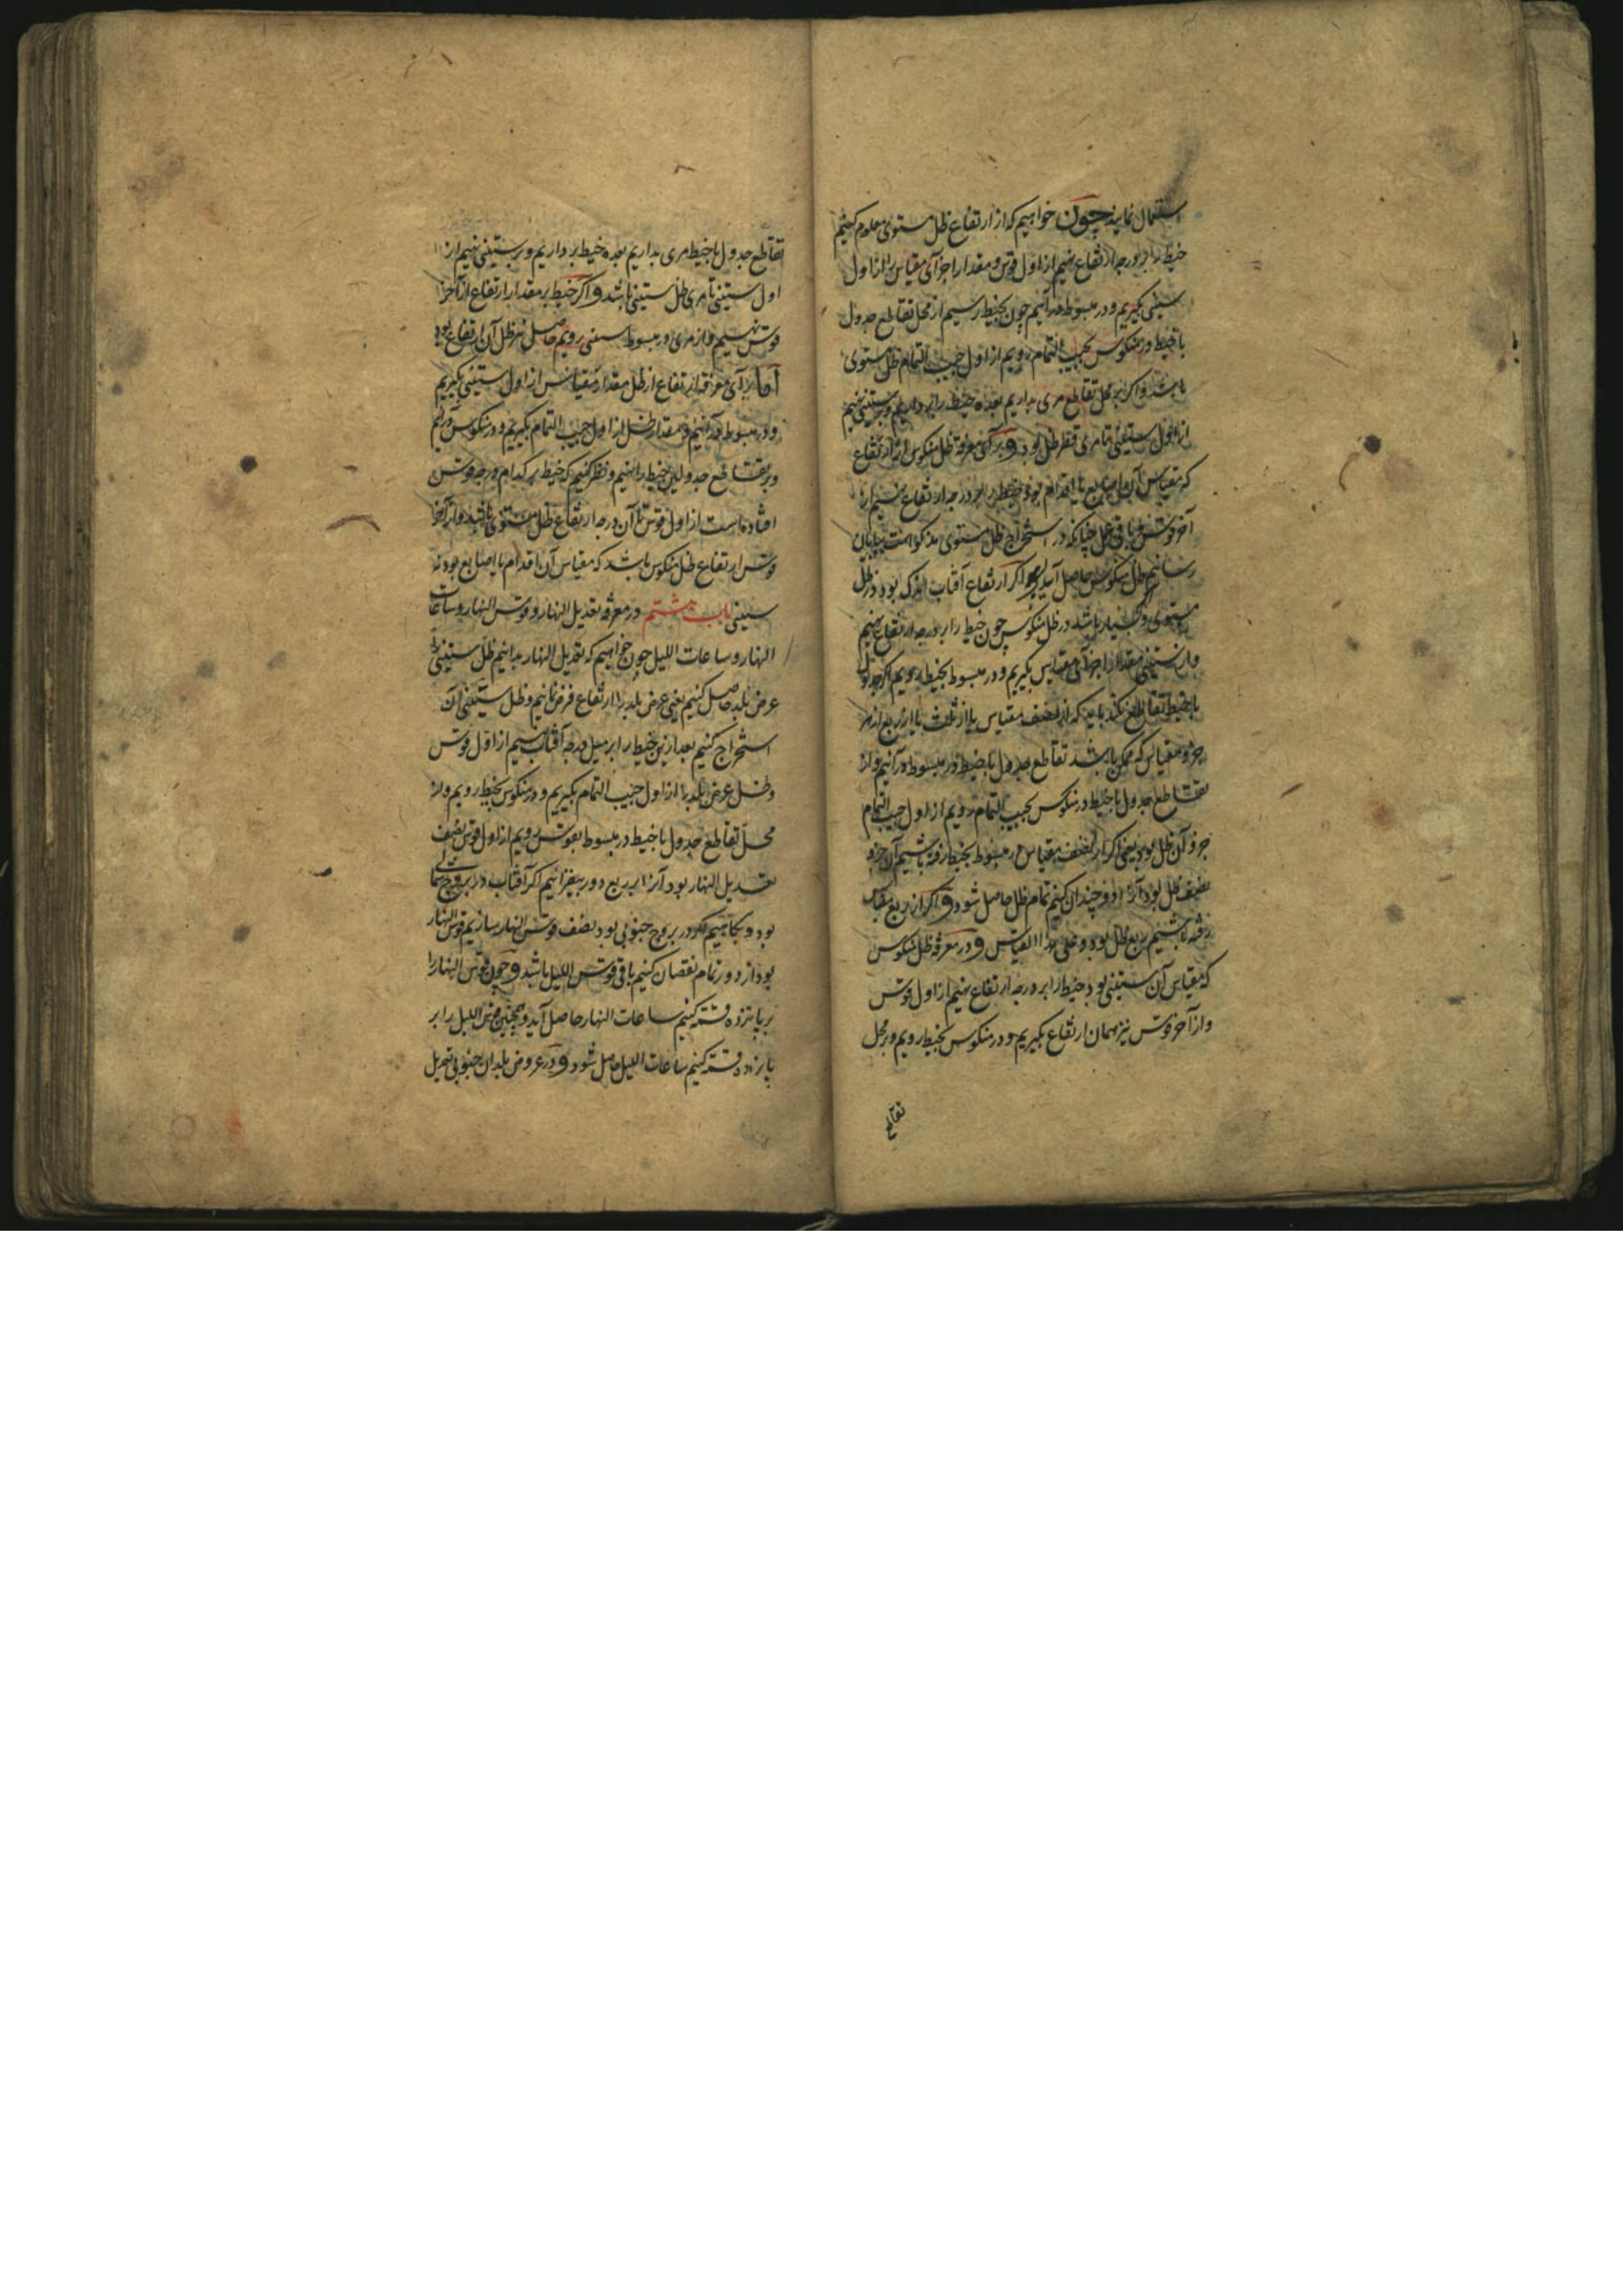 استعمال نمایند چون خواهیم که از ارتفاع ظل مستوی معلوم کنیم
خیط را بر درجه ارتفاع نهیم از اول قوس و مقدار اجزآی مقیاس را از اول
ستینی بگیریم و در مبسوط درآئیم چون بخیط رسیم از محل تقاطع جدول
با خیط در منکوس بجیب التمام رویم از اول جیب التمام ظل مستوی
باشد و اگر بر محل تقاطع مری بداریم بعده خیط را برداریم و بر ستینی نهیم
از اول ستینی تا مری قطر ظل بود و برآی معرفة ظل منکوس از ارتفاع
که مقیاس آن اصابع یا اقدام بود خیط را بر درجه ارتفاع نهیم از
آخر قوس و باقی عمل چنانکه در استخراج ظل مستوی مذکور است بپایان
رسانیم ظل منکوس حاصل آید و اگر ارتفاع آفتاب اندک بود در ظل
مستوی و بسیار باشد در ظل منکوس چون خیط را بر درجه ارتفاع نهیم
و از ستینی مقدار اجزآی مقیاس بگیریم و در مبسوط بخیط رویم اگر جدول
با خیط تقاطع نکند باید که از نصف مقیاس یا از ثلث یا از ربع از هر
جزو مقیاس که ممکن باشد تقاطع جدول با خیط در مبسوط درآئیم و از
تقاطع جدول با خیط در منکوس بجیب التمام رویم از اول جیب التمام
جزو آن ظل بود یعنی اگر از نصف مقیاس در مبسوط بخیط رفته باشیم آن جزو
نصف ظل بود آنرا دو چندان کنیم تمام ظل حاصل شود و اگر از ربع مقیاس
رفته باشیم ربع ظل بود و علی هذا القیاس و در معرفة ظل منکوس
که مقیاس آن ستینی بود خیط را بر درجه ارتفاع نهیم از اول قوس
و از آخر قوس نیز همان ارتفاع بگیریم و در منکوس بخیط رویم و بر محل
تقاطع
تقاطع جدول با خیط مری بداریم بعده خیط برداریم و بر ستینی نهیم از
اول ستینی تا مری ظل ستینی باشد و اگر خیط بر مقدار ارتفاع از آخر
قوس نهیم و از مری در مبسوط بستینی رویم حاصل نیز ظل آن ارتفاع بود
اما برآی معرفة ارتفاع از ظل مقدار مقیاس از اول ستینی بگیریم
و در مبسوط درآئیم و مقدار ظل از اول جیب التمام بگیریم و در منکوس درآئیم
و بر تقاطع جدولین خیط را نهیم و نظر کنیم که خیط بر کدام درجه قوس
افتاده است از اول قوس تا آن درجه ارتفاع ظل مستوی باشد و از آخر
قوس ارتفاع ظل منکوس باشد که مقیاس آن اقدام یا اصابع بود نه
ستینی باب هشتم در معرفة تعدیل النهار و قوس النهار و ساعات
النهار و ساعات اللیل چون خواهیم که تعدیل النهار بدانیم ظل ستینی
عرض بلد حاصل کنیم یعنی عرض بلد را ارتفاع فرض نمائیم و ظل ستینی آن
استخراج کنیم بعد ازین خیط را بر میل درجه آفتاب نهیم از اول قوس
و ظل عرض بلد را از اول جیب التمام بگیریم و در منکوس بخیط رویم و از
محل تقاطع جدول با خیط در مبسوط بقوس رویم از اول قوس نصف
تعدیل النهار بود آنرا بر ربع دور بیفزائیم اگر آفتاب در بروج شمالی
بود و بکاهیم اگر در بروج جنوبی بود نصف قوس النهار سازیم قوس النهار
بود از دور تمام نقصان کنیم باقی قوس اللیل باشد و چون قوس النهار را
بر پانزده قسمة کنیم ساعات النهار حاصل آید و همچنین قوس اللیل را بر
پانزده قسمة کنیم ساعات اللیل حاصل شود و در عروض بلدان جنوبی تعدیل